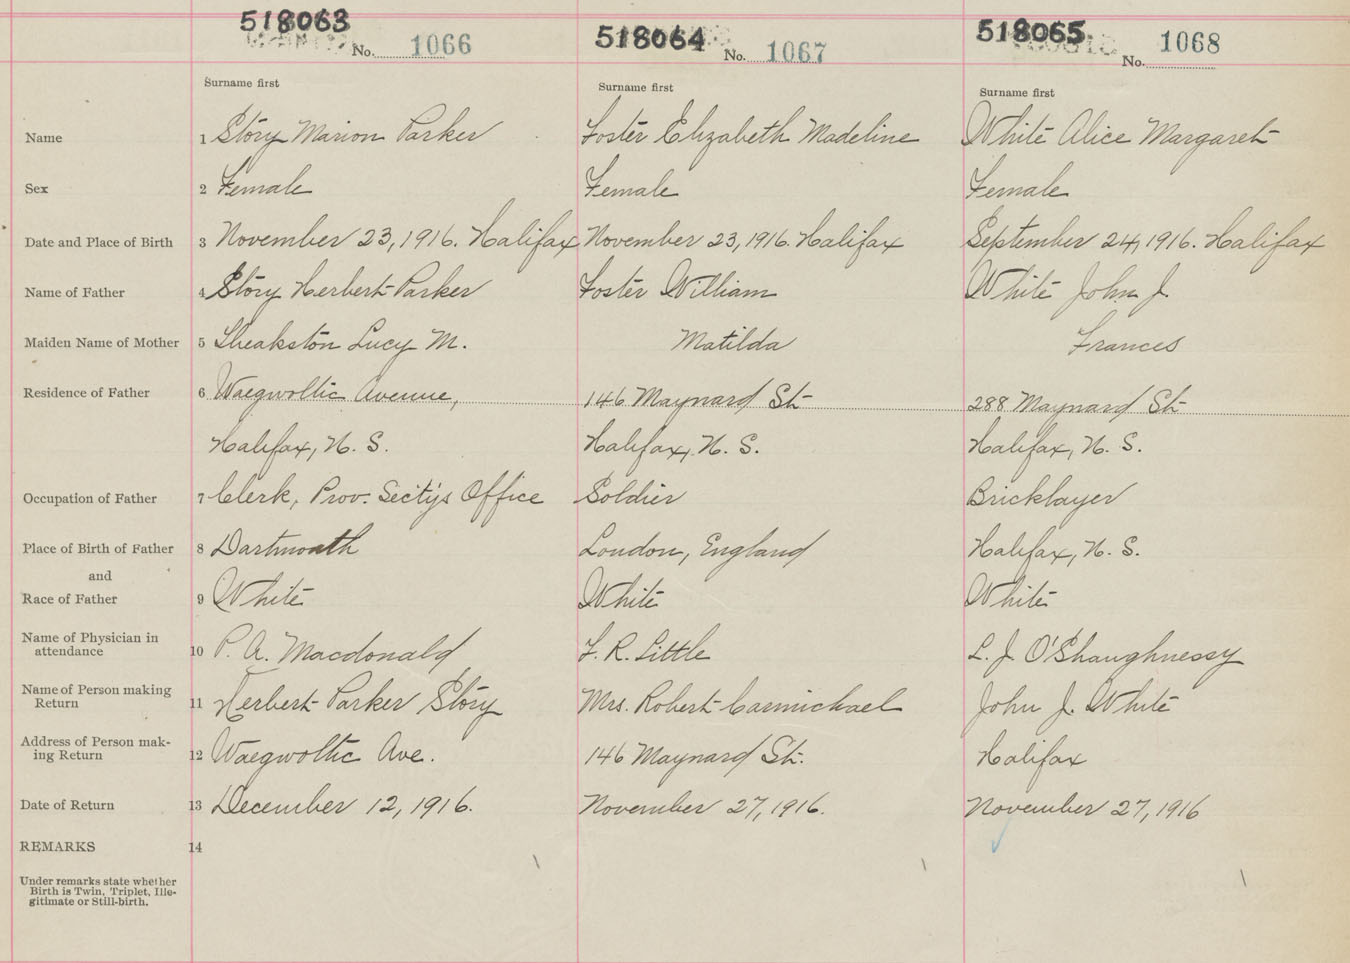 518063 518064 518065
No. 1066 No. 1067 No. 1068
Surname first Surname first Surname first
Name 1 Story Marion Parker Foster Elizabeth Madeline White Alice Margaret
Sex 2 Female Female Female
Date and Place of Birth 3 November 23, 1916. Halifax November 23, 1916. Halifax September 24, 1916. Halifax
Name of Father 4 Story Herbert Parker Foster William White John J.
Maiden Name of Mother 5 Theakston Lucy M. Matilda Frances
Residence of Father 6 Waegwoltic Avenue, 146 Maynard St. 288 Maynard St.
Halifax, N. S. Halifax, N. S. Halifax, N. S.
Occupation of Father 7 Clerk, Prov. Sec'ty's Office Soldier Bricklayer
Place of Birth of Father 8 Dartmouth London, England Halifax, N. S.
and
Race of Father 9 White White White
Name of Physician in
attendance 10 P. A. Macdonald F. R. Little L. J. O'Shaughnessy
Name of Person making
Return 11 Herbert Parker Story Mrs. Robert Carmichael John J. White
Address of Person mak-
ing Return 12 Waegwoltic Ave. 146 Maynard St. Halifax
Date of Return 13 December 12, 1916. November 27, 1916. November 27, 1916
REMARKS 14
Under remarks state whether
Birth is Twin, Triplet, Ille-
gitimate or Still-birth.